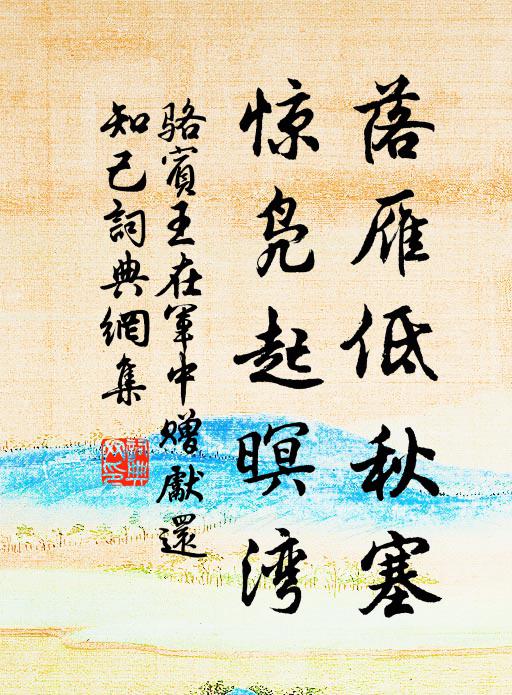 落雁低秋塞
惊凫起暝湾
骆賓王在軍中赠獻還
知己詞典網集